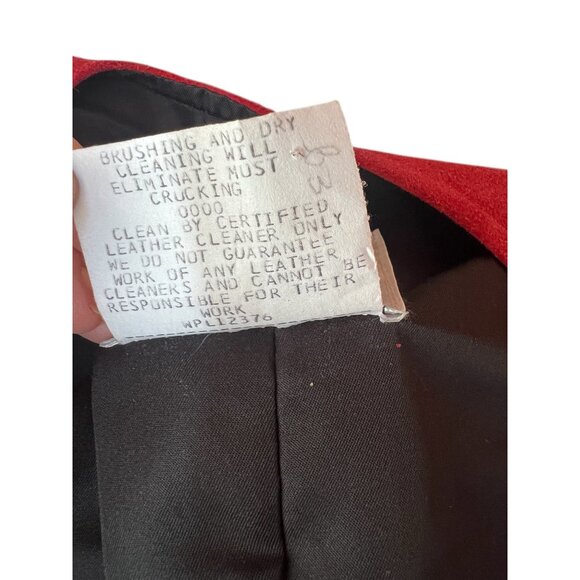 BRUSHING AND DRY
CLEANING WILL
ELIMINATE MOST
CRUCKING
0000
CLEAN BY CERTIFIED
LEATHER CLEANER ONLY
WE DO NOT GUARANTEE
WORK OF ANY LEATHER
CLEANERS AND CANNOT BE
RESPONSIBLE FOR THEIR
WORK
WPL12376